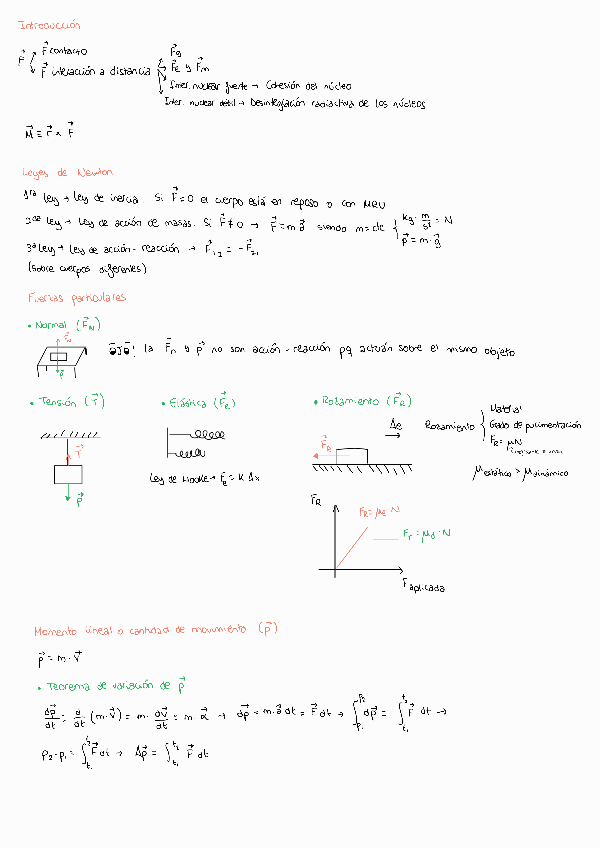 Introducción
F⃗ F⃗ contacto
F⃗ interacción a distancia
F⃗g
F⃗e y F⃗m
Inter. nuclear fuerte → Cohesión del núcleo
Inter. nuclear débil → Desintegración radiactiva de los núcleos
M⃗ = r⃗ × F⃗
Leyes de Newton
1ra ley → Ley de inercia. Si F⃗ = 0 el cuerpo está en reposo o con MRU
2da ley → Ley de acción de masas. Si F⃗ ≠ 0 → F⃗ = m a⃗ siendo m = cte { kg · m/s² = N
p⃗ = m · g⃗
3ra ley → Ley de acción - reacción → F⃗1,2 = -F⃗2,1
(sobre cuerpos diferentes)
Fuerzas particulares
• Normal (F⃗N)
F⃗N
P⃗
OJO! la F⃗n y p⃗ no son acción - reacción pq actúan sobre el mismo objeto
• Tensión (T⃗)
T⃗
P⃗
• Elástica (F⃗e)
Ley de Hooke → Fe = K Δx
• Rozamiento (F⃗R)
F⃗R
Rozamiento { Material
Grado de pulimentación
FR = μN
μestático > μdinámico
FR
FR = μe · N
Fr = μd · N
F aplicada
Momento lineal o cantidad de movimiento (p⃗)
p⃗ = m · v⃗
• Teorema de variación de p⃗
dp⃗/dt = d/dt (m · v⃗) = m · dv⃗/dt = m a⃗ → dp⃗ = m · a⃗ dt = F⃗ dt → ∫p1^p2 dp⃗ = ∫t1^t2 F⃗ dt →
p2 - p1 = ∫t1^t2 F⃗ dt → Δp⃗ = ∫t1^t2 F⃗ dt